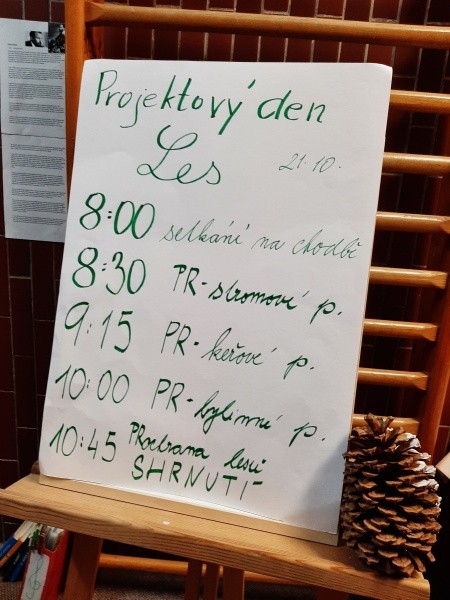 Projektový den
Les
21.10.
8:00 setkání na chodbě
8:30 PR-stromové p.
9:15 PR-keřové p.
10:00 PR-bylinné p.
10:45 PRochrana lesů
SHRNUTÍ